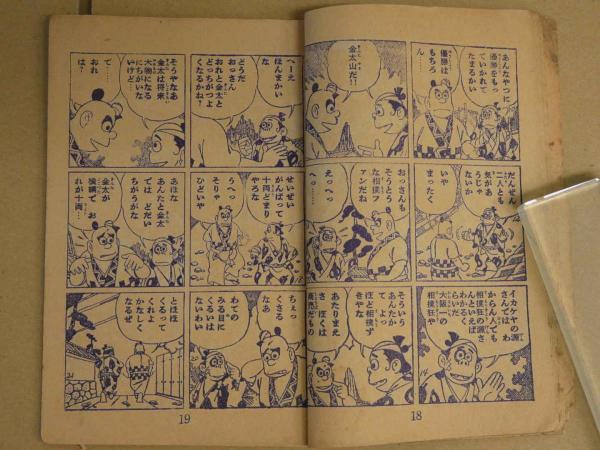 あんなやつに
優勝をもっ
ていかれて
たまるかい
優勝は
もちろ
ん
金太山だ!!
だんぜん
二人とも
気があ
うじゃ
ないか
いや
まったく
おっさんも
そうとう
な相撲フ
ァンだね
えっへっ
へっ…
イカケヤの源
さんでは わ
からん人でも
相撲狂の源さ
んといえば
わかるく
らいだ
大阪一の
相撲狂や
そういう
あんたか
て よっ
ほど相撲ず
きやな
あたりまえ
さ ぼくは
商売だもの
18
へーえ
ほんまかい
な
どうだ
おっさん
おれと金太と
どっちがつよ
くなるかね
そうやなあ
金太は将来
大物になる
にちがいな
いけど
で……
おれ
は?
せいぜい
がんばって
十両どまり
やろな
うへっ
そりゃ
ひどいや
あほな
あんたと金太
では どだい
ちがうがな
金太が
横綱で お
れが十両…
ちえっ
くさる
なあ
わての
みる目に
くるいは
ないわい
とほほ
くるって
くれよ
かなしく
なるぜ
19